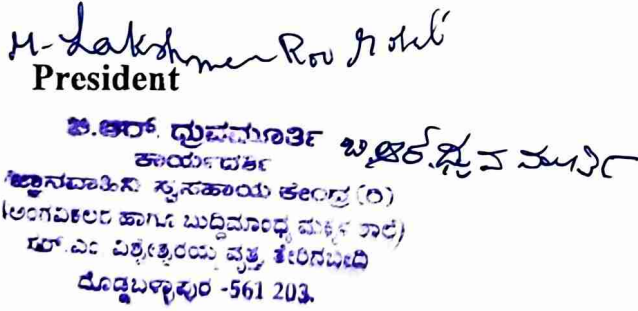 M. Lakshman Rov Mokil
President
ಬಿ.ಆರ್. ಧ್ರುವಮೂರ್ತಿ ಬಿ,ಆರ್.ಧ್ರುವ ಮೂರ್ತಿ
ಕಾರ್ಯದರ್ಶಿ
ಜ್ಞಾನವಾಹಿನಿ ಸ್ವಸಹಾಯ ಕೇಂದ್ರ (ರಿ)
(ಅಂಗವಿಕಲರ ಹಾಗೂ ಬುದ್ಧಿಮಾಂಧ್ಯ ಮಕ್ಕಳ ಶಾಲೆ)
ಸರ್.ಎಂ ವಿಶ್ವೇಶ್ವರಯ್ಯ ವೃತ್ತ, ತೇರಿನಬೀದಿ
ದೊಡ್ಡಬಳ್ಳಾಪುರ -561 203.